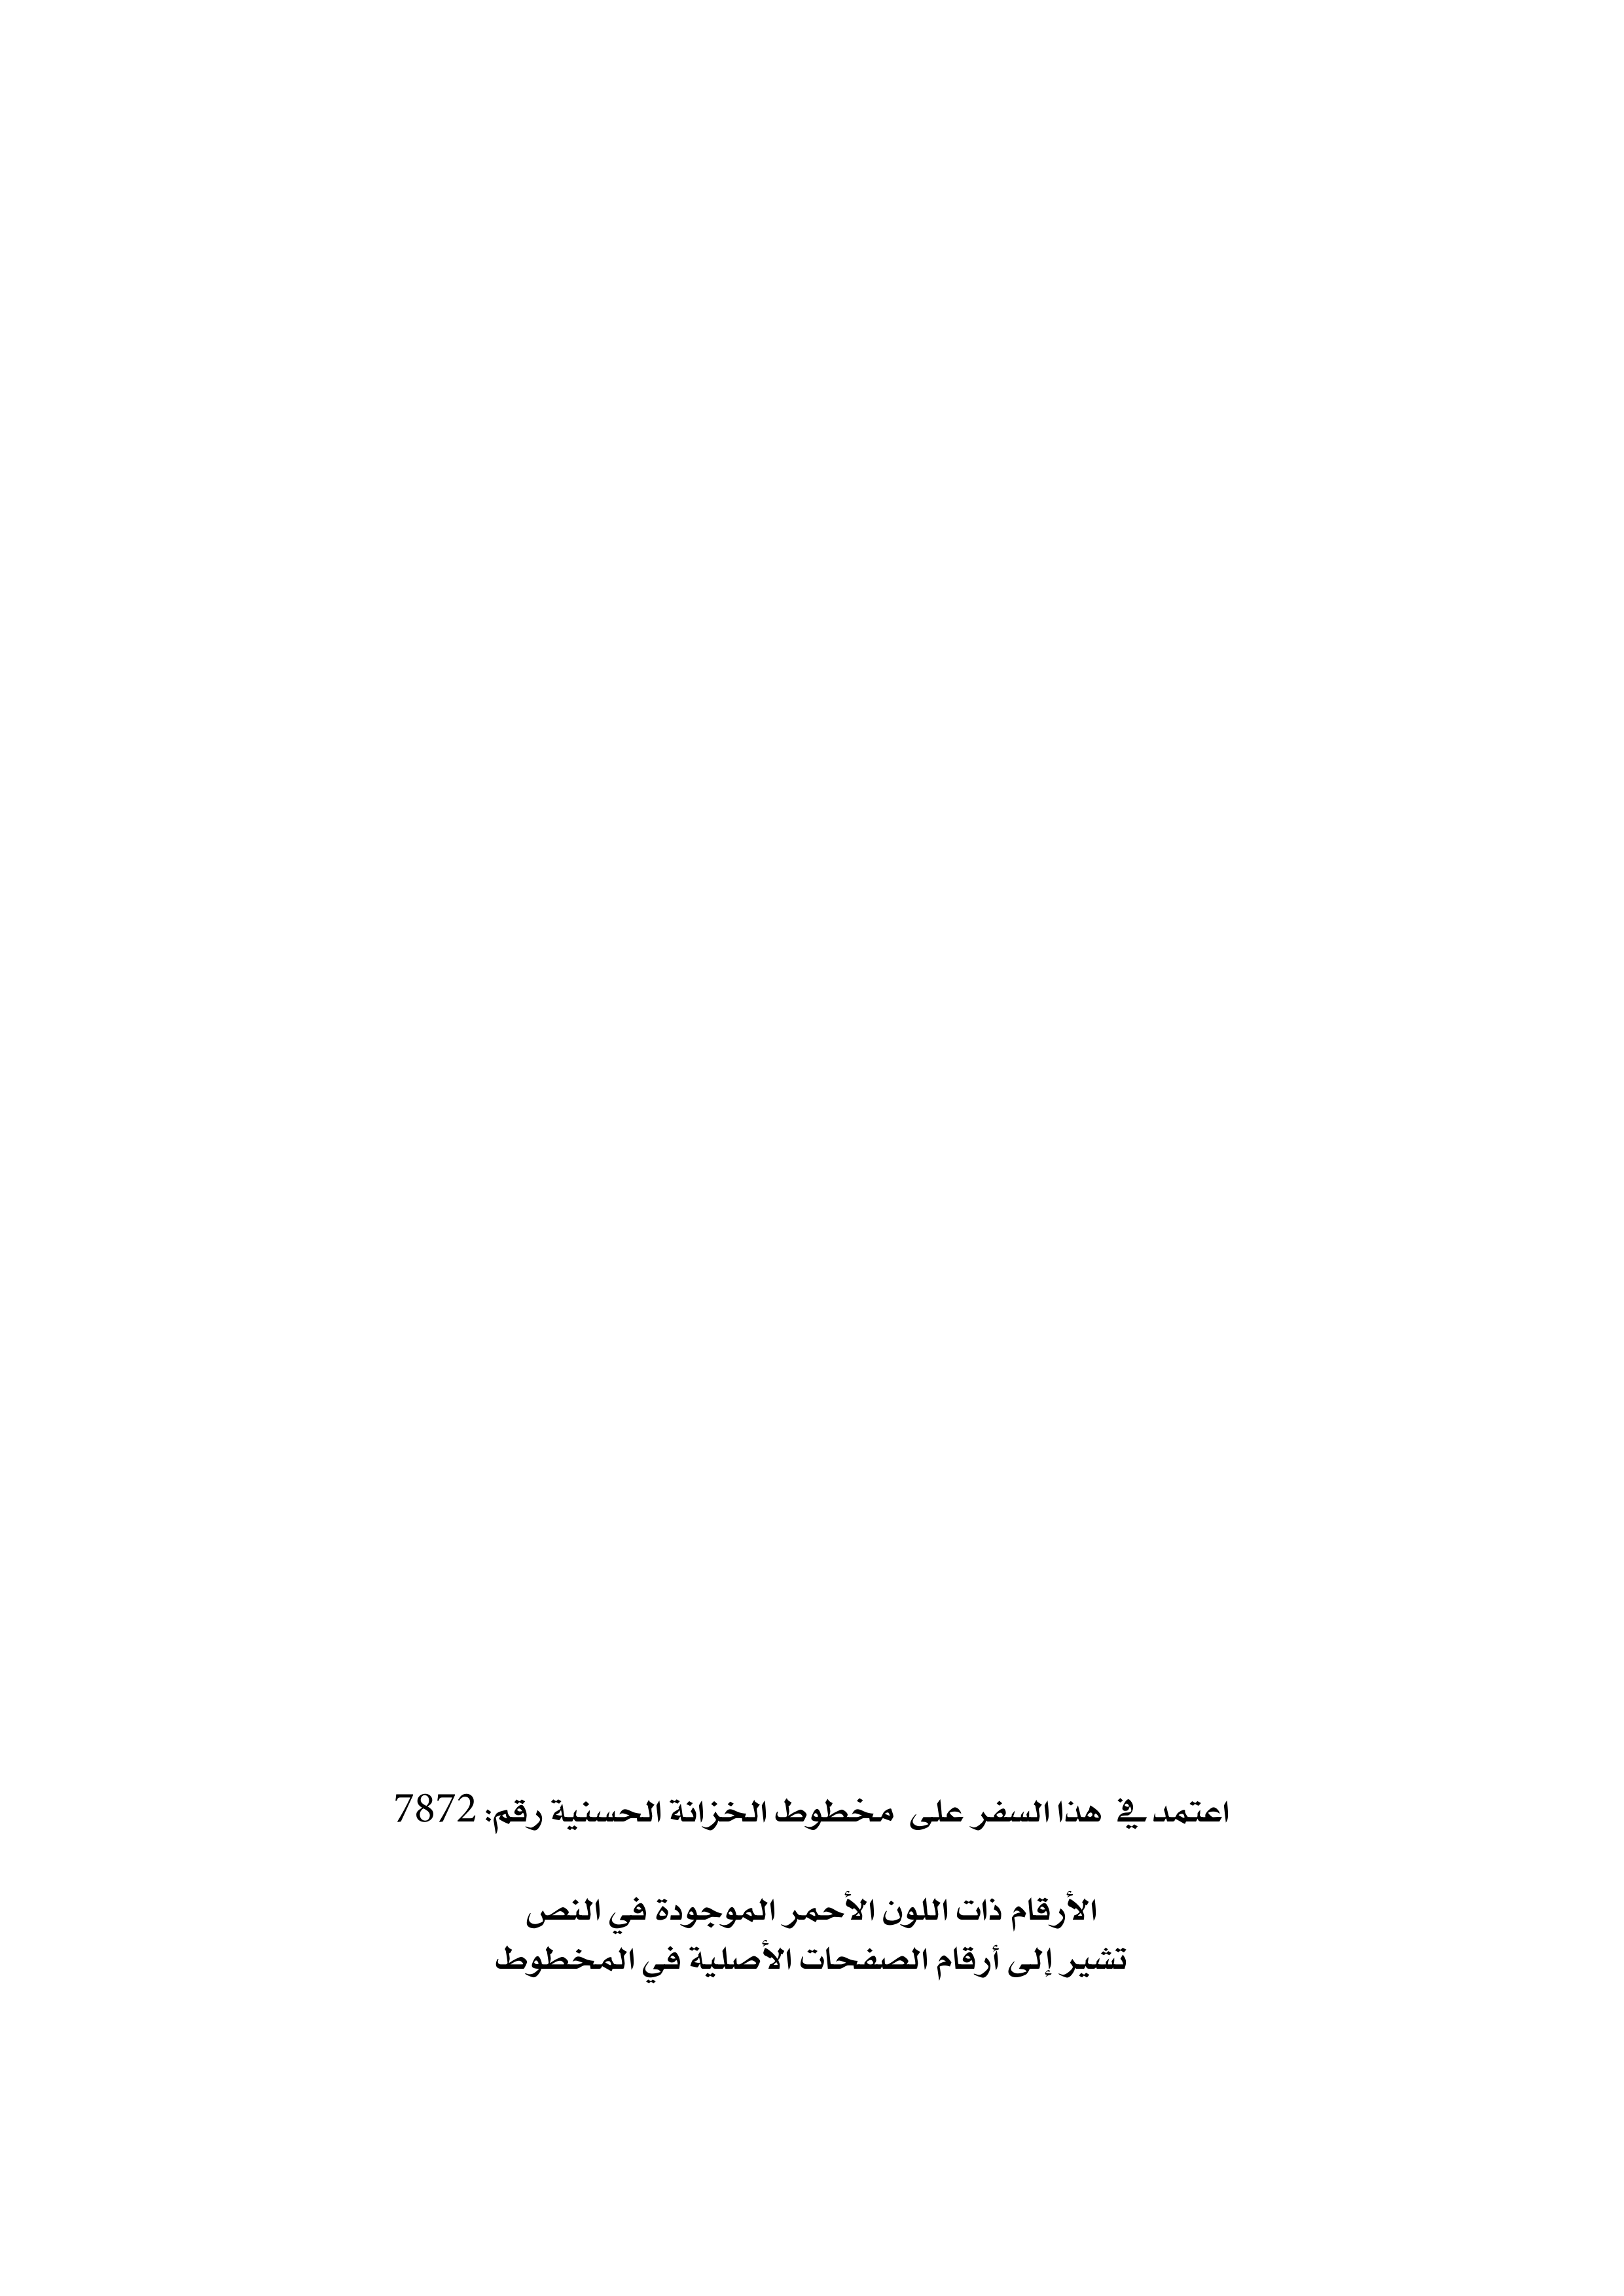 اعتمد في هذا السفر على مخطوط الخزانة الحسنية رقم: 7872
الأرقام ذات اللون الأحمر الموجودة في النص
تشير إلى أرقام الصفحات الأصلية في المخطوط